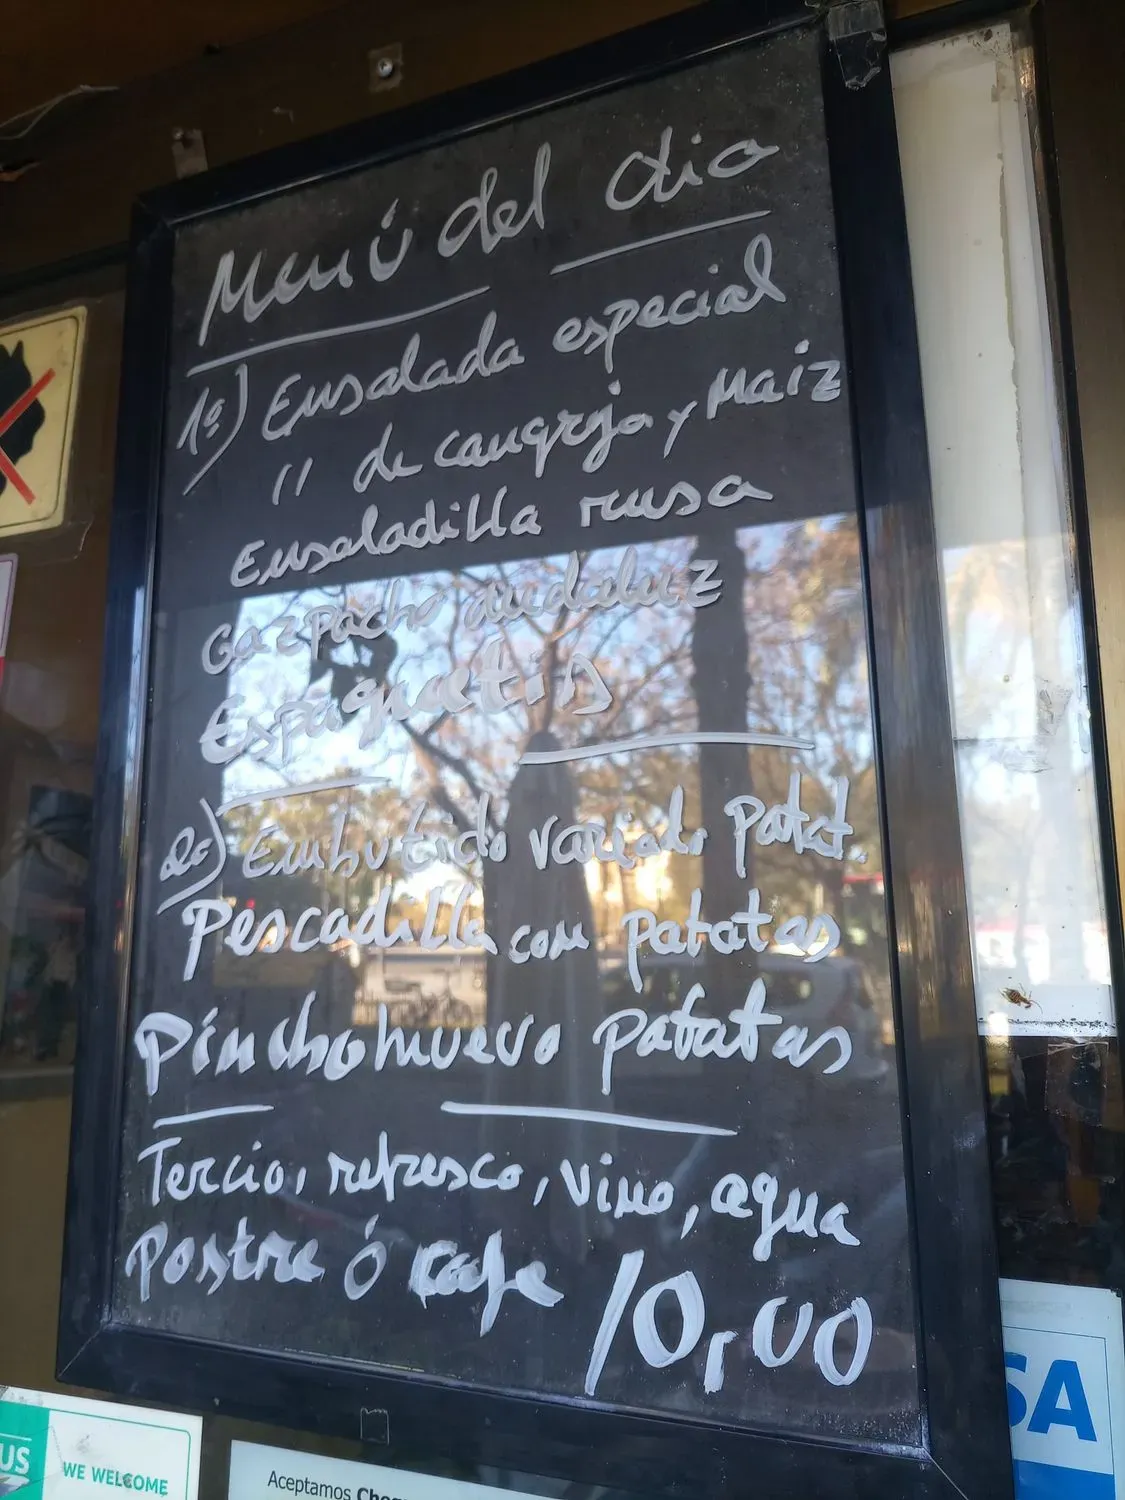 Menú del dia
1º) Ensalada especial
" de cangrejo y Maiz
Ensaladilla rusa
Gazpacho andaluz
Espaguetis
2º) Embutido variado patat.
Pescadilla con patatas
Pincho huevo patatas
Tercio, refresco, vino, agua
Postre ó cafe 10,00
SA
US
WE WELCOME
Aceptamos